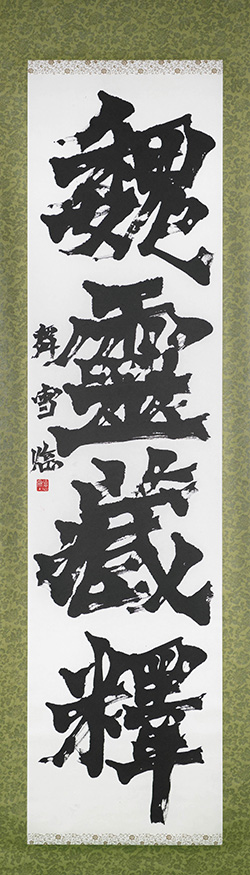 魏靈藏釋
聲雪臨